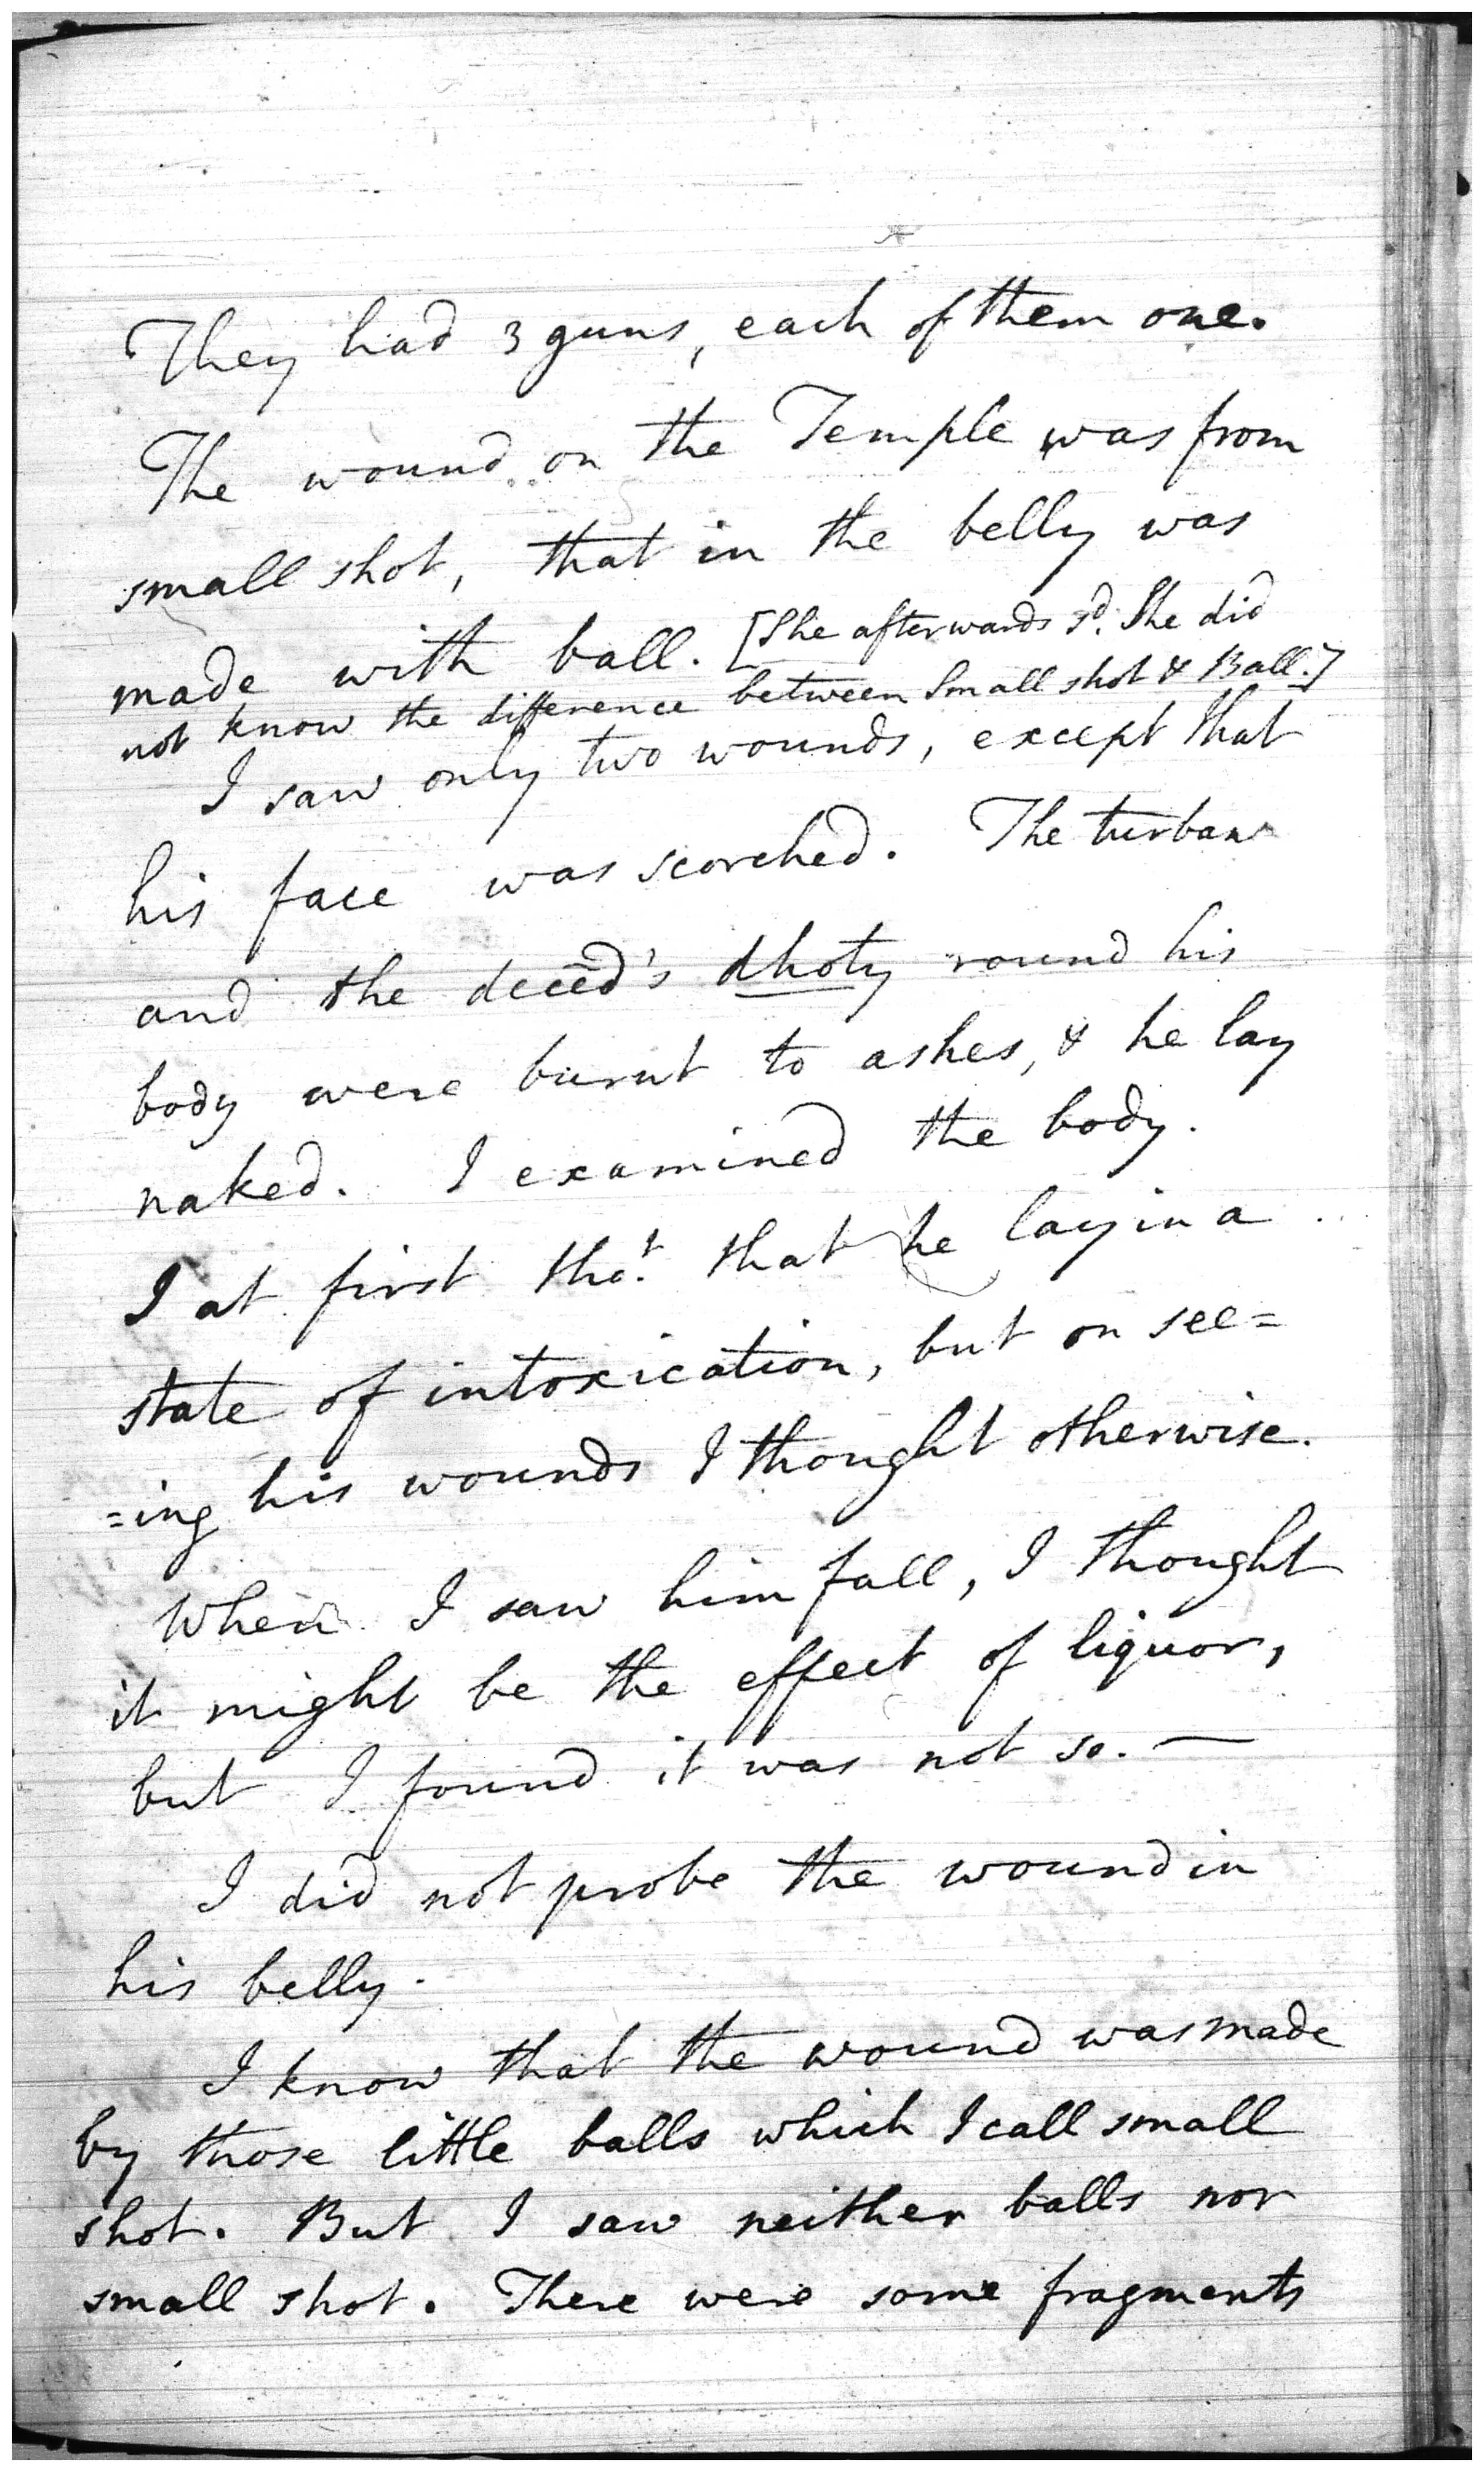 They had 3 guns, each of them one.
The wound on the Temple was from
small shot, that in the belly was
made with ball. [She afterwards sd. She did
not know the difference between Small shot & Ball.]
I saw only two wounds, except that
his face was scorched. The turban
and the deced's dhoty round his
body were burnt to ashes, & he lay
naked. I examined the body.
I at first thot. that he lay in a
state of intoxication, but on see=
=ing his wounds I thought otherwise.
When I saw him fall, I thought
it might be the effect of liquor,
but I found it was not so. —
I did not probe the wound in
his belly.
I know that the wound was made
by those little balls which I call small
shot. But I saw neither balls nor
small shot. There were some fragments